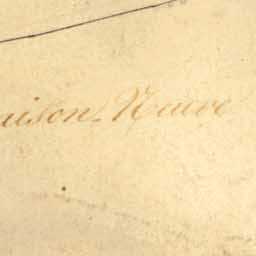 aison Neuve